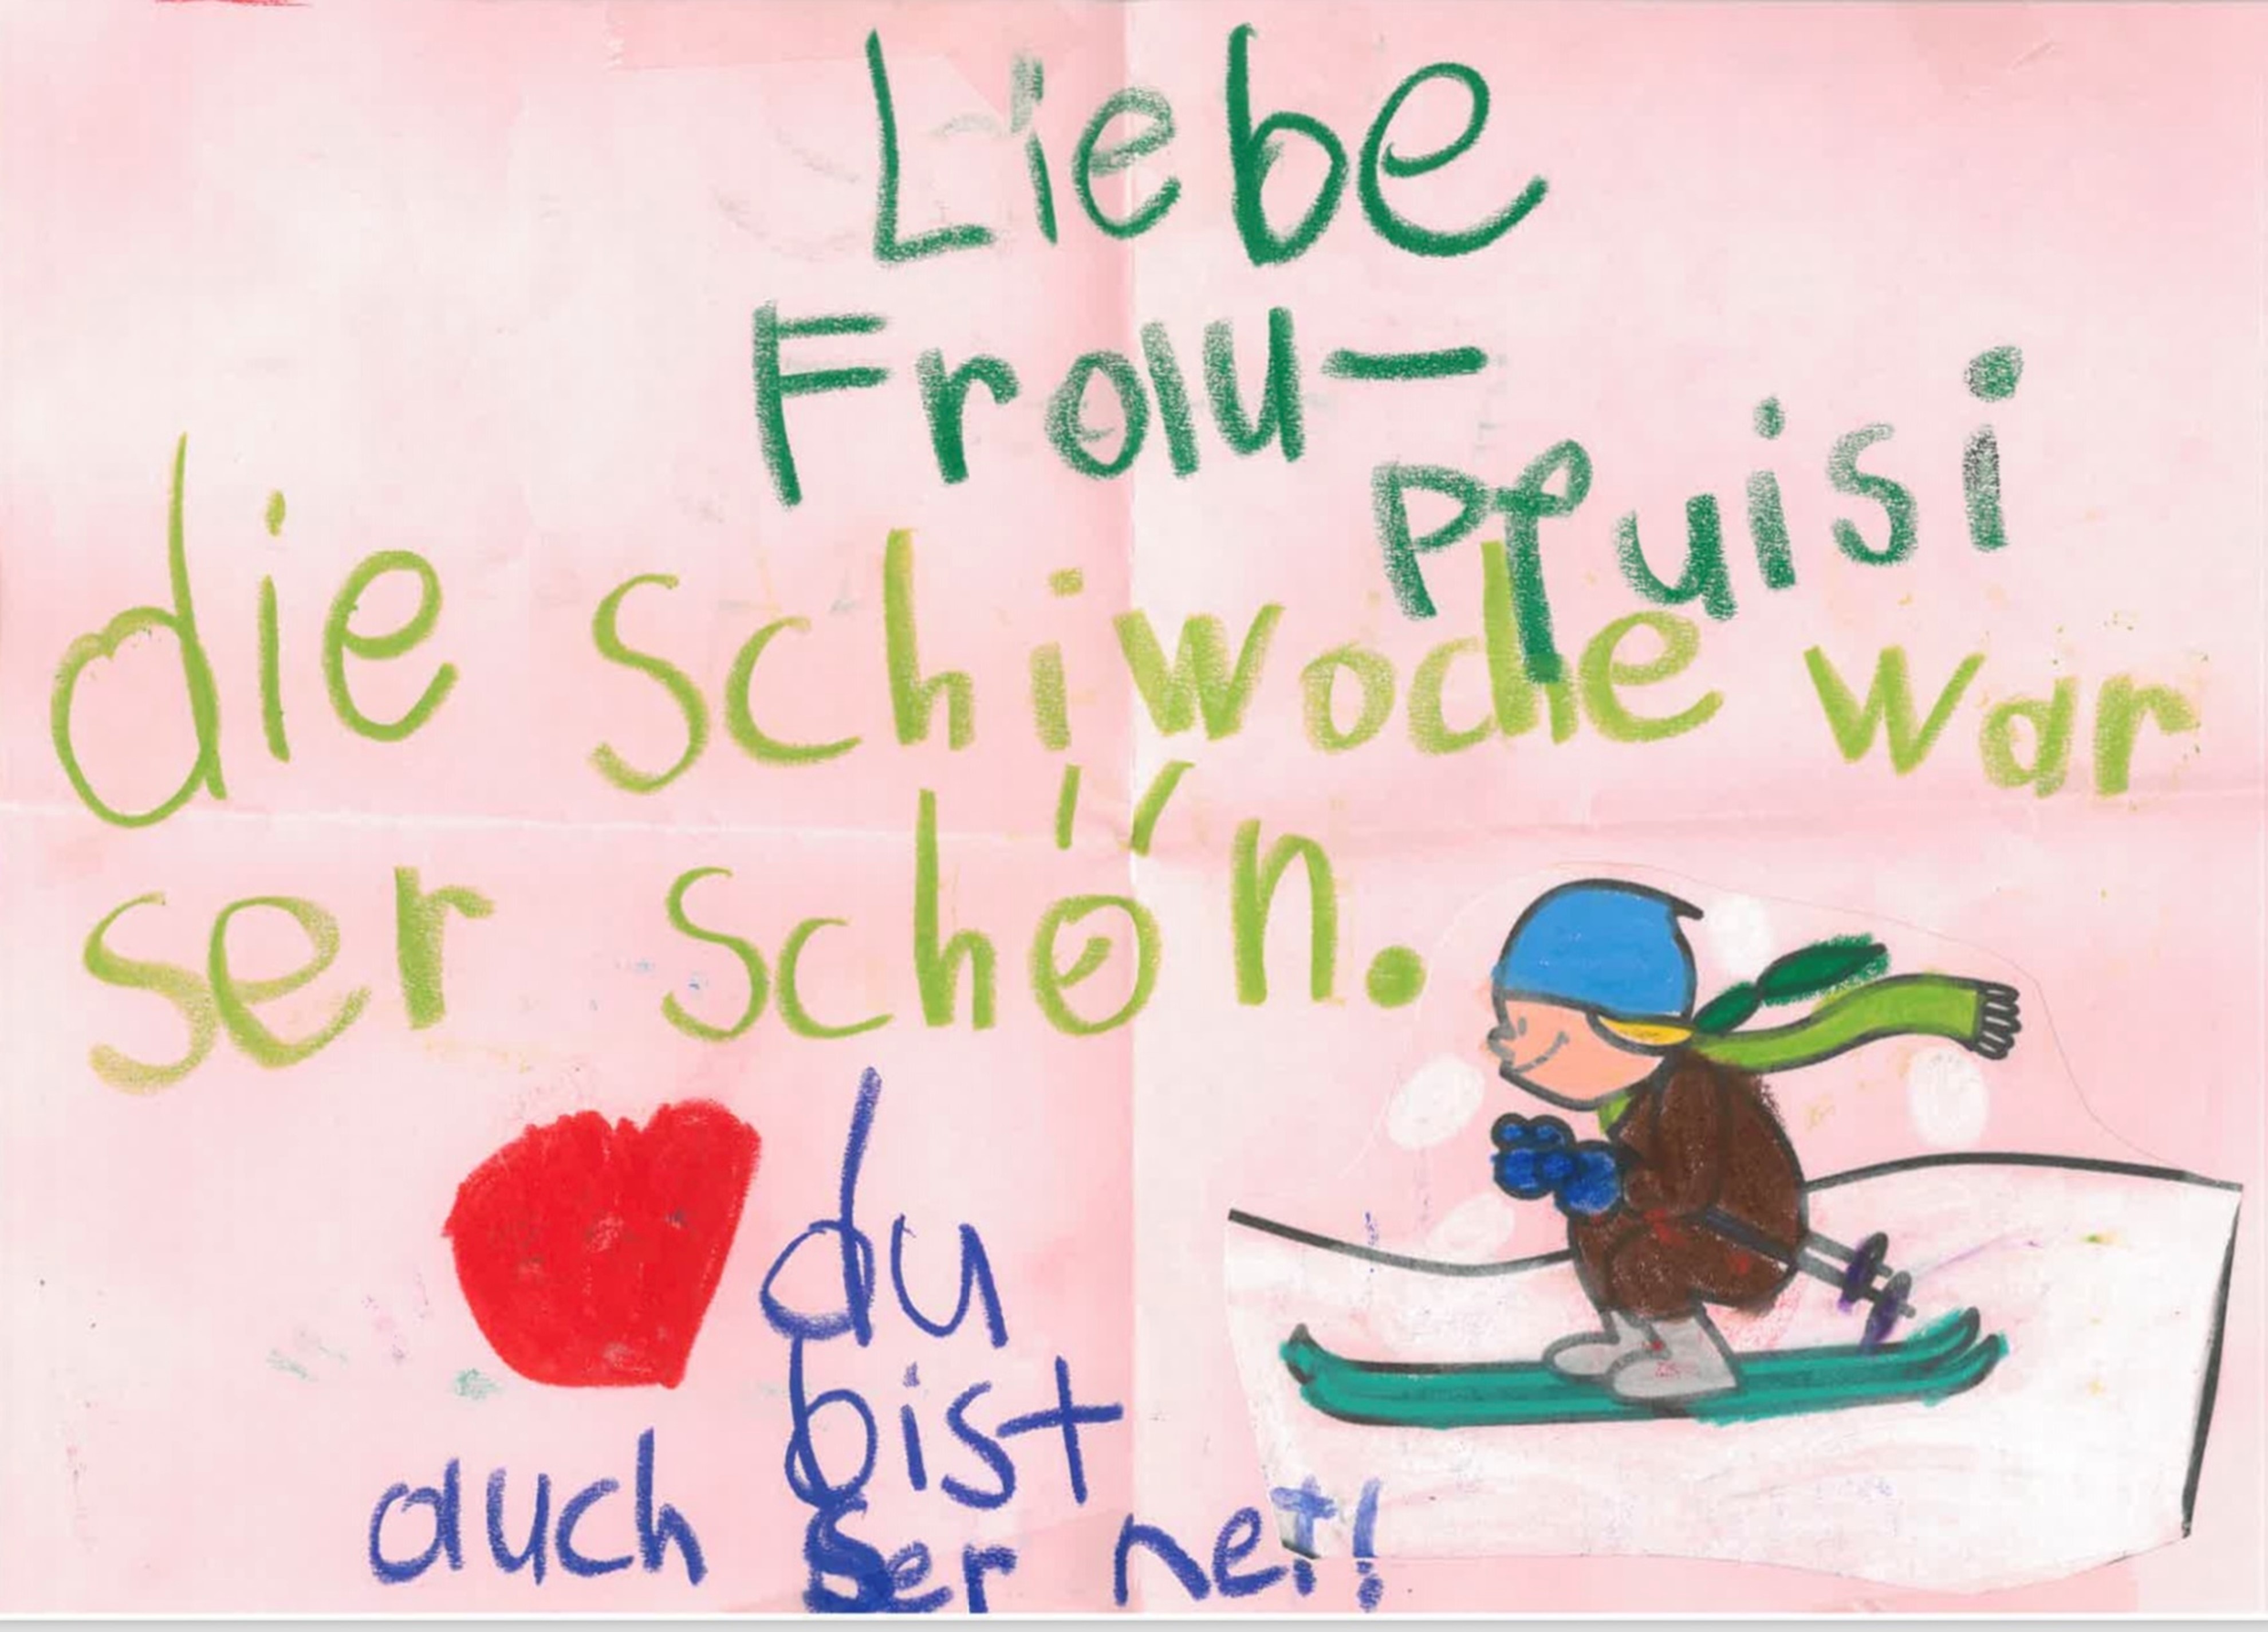 Liebe
Frau-
die schiwoche war
ser schön.
du
bist
auch ser net!